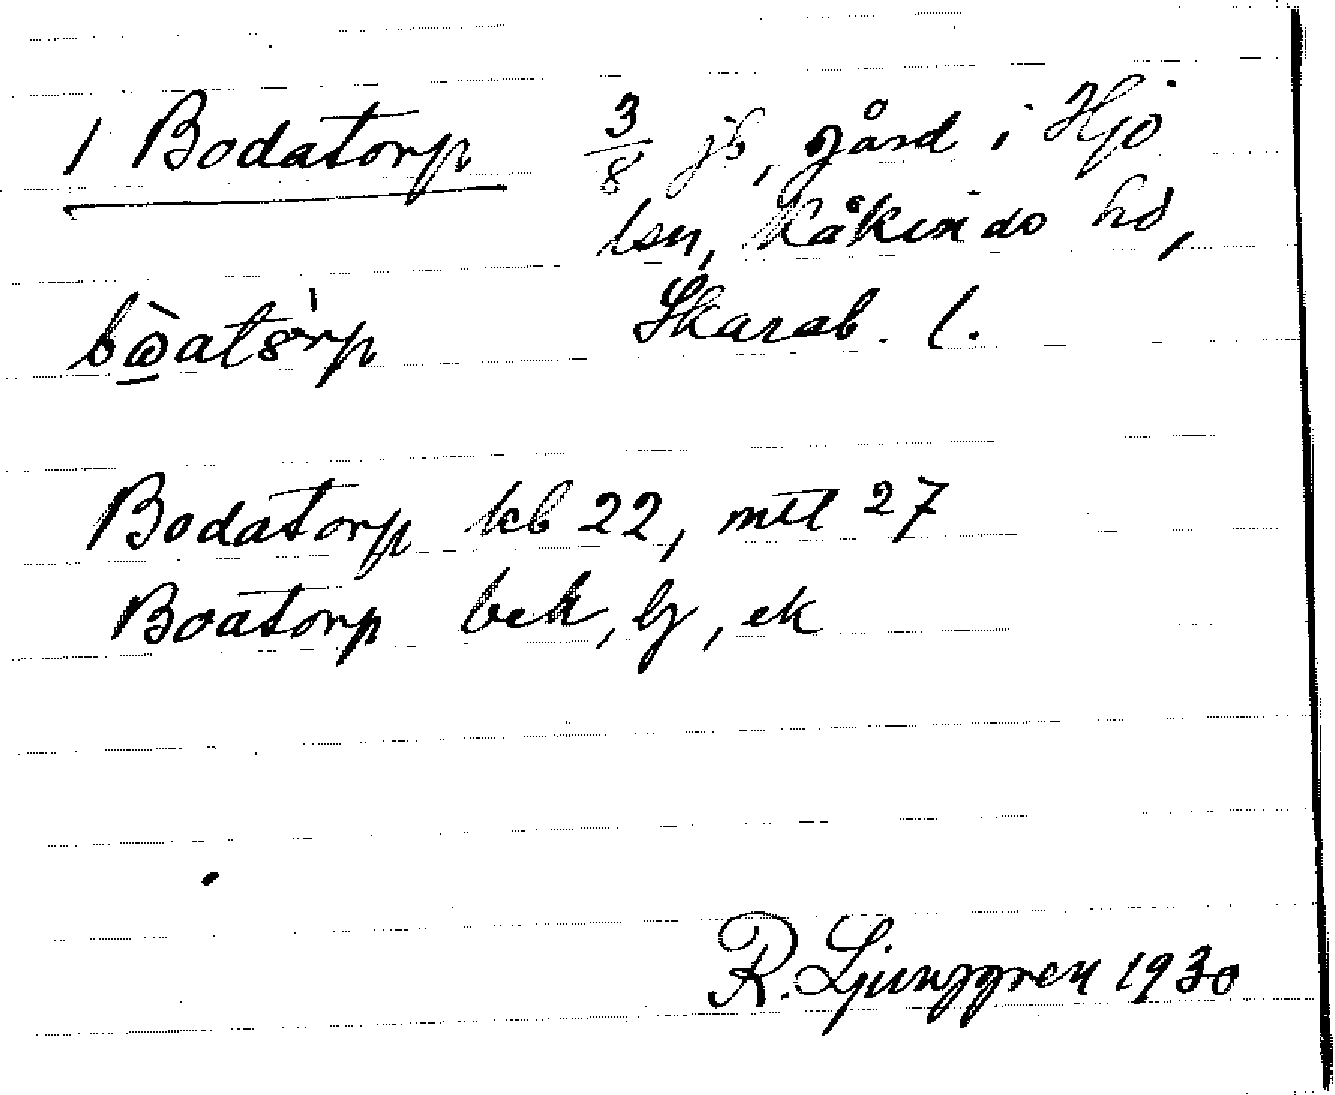 1 Bodatorp 3/8 js, gård i Hjo
lsn, Kåkinds hd,
Skarab. l.
Bodatorp kb 22, mtl 27
Boatorp bek, lj, ek
R. Ljunggren 1930